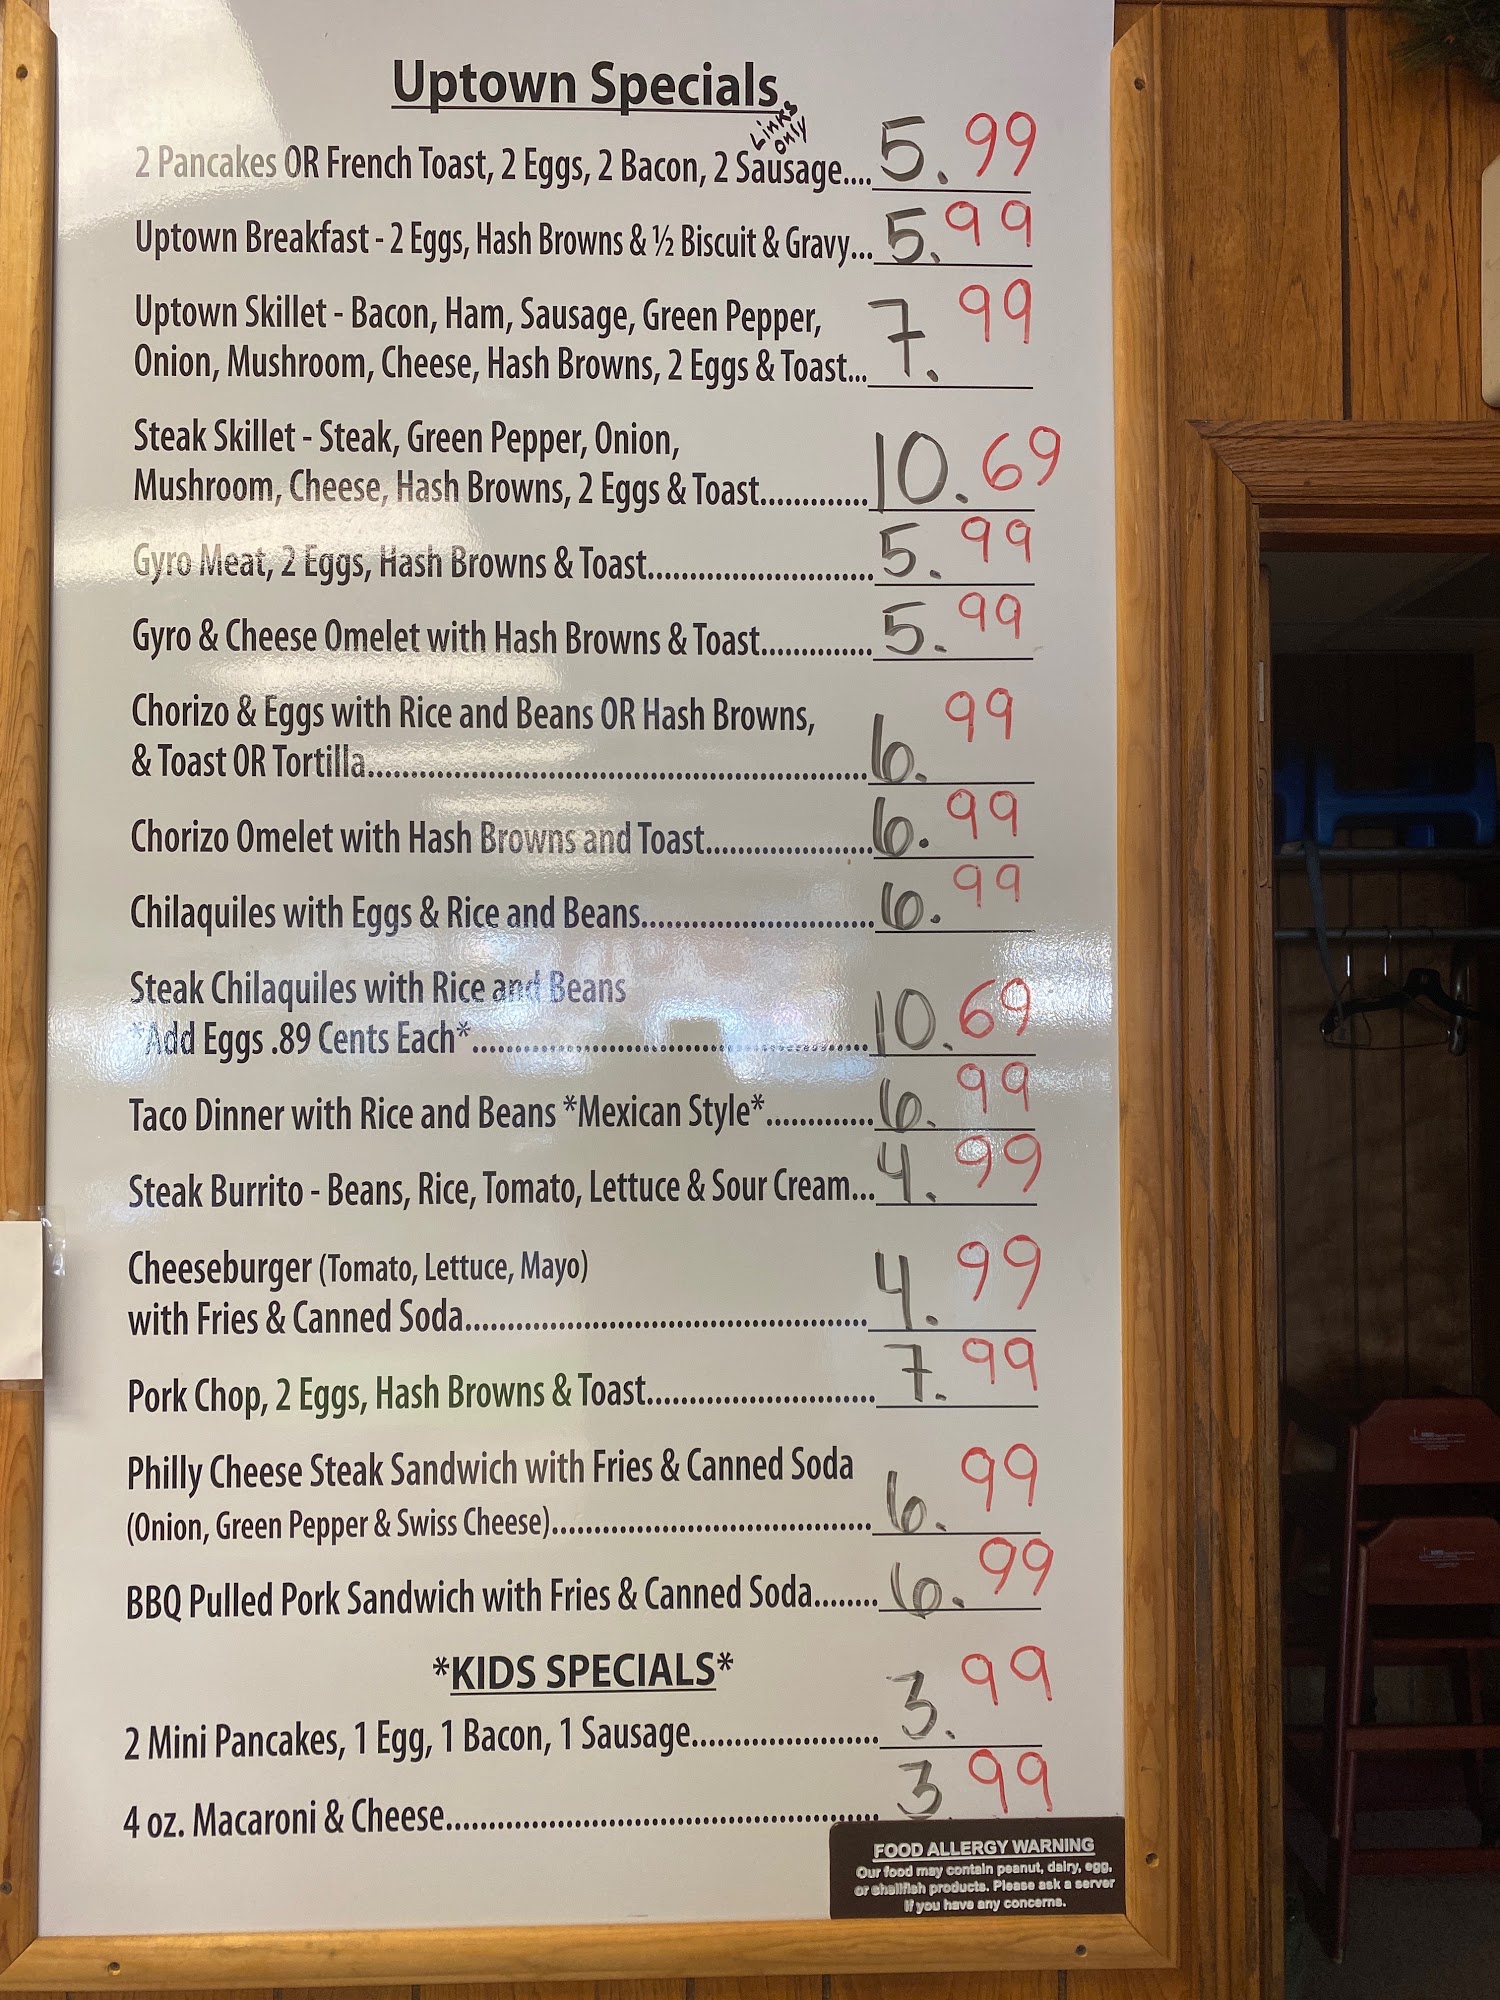 Uptown Specials
Links
only
2 Pancakes OR French Toast, 2 Eggs, 2 Bacon, 2 Sausage.... 5.99
Uptown Breakfast - 2 Eggs, Hash Browns & ½ Biscuit & Gravy... 5.99
Uptown Skillet - Bacon, Ham, Sausage, Green Pepper,
Onion, Mushroom, Cheese, Hash Browns, 2 Eggs & Toast... 7.99
Steak Skillet - Steak, Green Pepper, Onion,
Mushroom, Cheese, Hash Browns, 2 Eggs & Toast............. 10.69
Gyro Meat, 2 Eggs, Hash Browns & Toast........................... 5.99
Gyro & Cheese Omelet with Hash Browns & Toast.............. 5.99
Chorizo & Eggs with Rice and Beans OR Hash Browns,
& Toast OR Tortilla............................................................ 6.99
Chorizo Omelet with Hash Browns and Toast.................... 6.99
Chilaquiles with Eggs & Rice and Beans............................ 6.99
Steak Chilaquiles with Rice and Beans
*Add Eggs .89 Cents Each*................................................ 10.69
Taco Dinner with Rice and Beans *Mexican Style*............. 6.99
Steak Burrito - Beans, Rice, Tomato, Lettuce & Sour Cream... 4.99
Cheeseburger (Tomato, Lettuce, Mayo)
with Fries & Canned Soda................................................ 4.99
Pork Chop, 2 Eggs, Hash Browns & Toast........................... 7.99
Philly Cheese Steak Sandwich with Fries & Canned Soda
(Onion, Green Pepper & Swiss Cheese)...................................... 6.99
BBQ Pulled Pork Sandwich with Fries & Canned Soda........ 6.99
*KIDS SPECIALS*
2 Mini Pancakes, 1 Egg, 1 Bacon, 1 Sausage...................... 3.99
4 oz. Macaroni & Cheese.................................................... 3.99
FOOD ALLERGY WARNING
Our food may contain peanut, dairy, egg,
or shellfish products. Please ask a server
if you have any concerns.